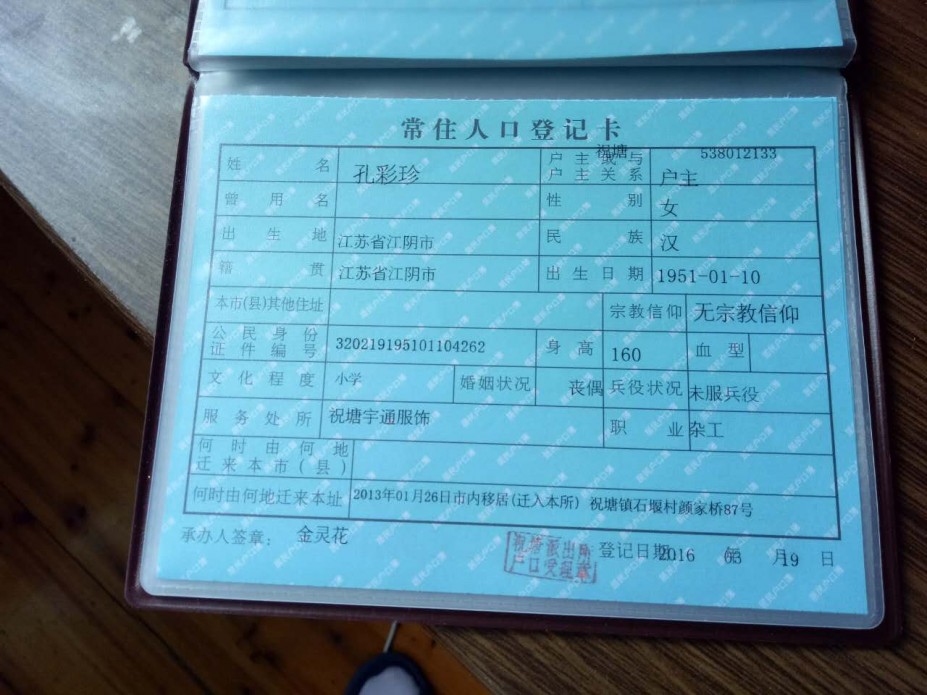 常住人口登记卡
姓名 孔彩珍 户主或与户主关系 祝塘 538012133 户主
曾用名 性别 女
出生地 江苏省江阴市 民族 汉
籍贯 江苏省江阴市 出生日期 1951-01-10
本市(县)其他住址 宗教信仰 无宗教信仰
公民身份证件编号 320219195101104262 身高 160 血型
文化程度 小学 婚姻状况 丧偶 兵役状况 未服兵役
服务处所 祝塘宇通服饰 职业 杂工
何时由何地迁来本市(县)
何时由何地迁来本址 2013年01月26日市内移居(迁入本所) 祝塘镇石堰村颜家桥87号
承办人签章: 金灵花 祝塘派出所 户口受理章 登记日期 2016 年 03 月 19 日